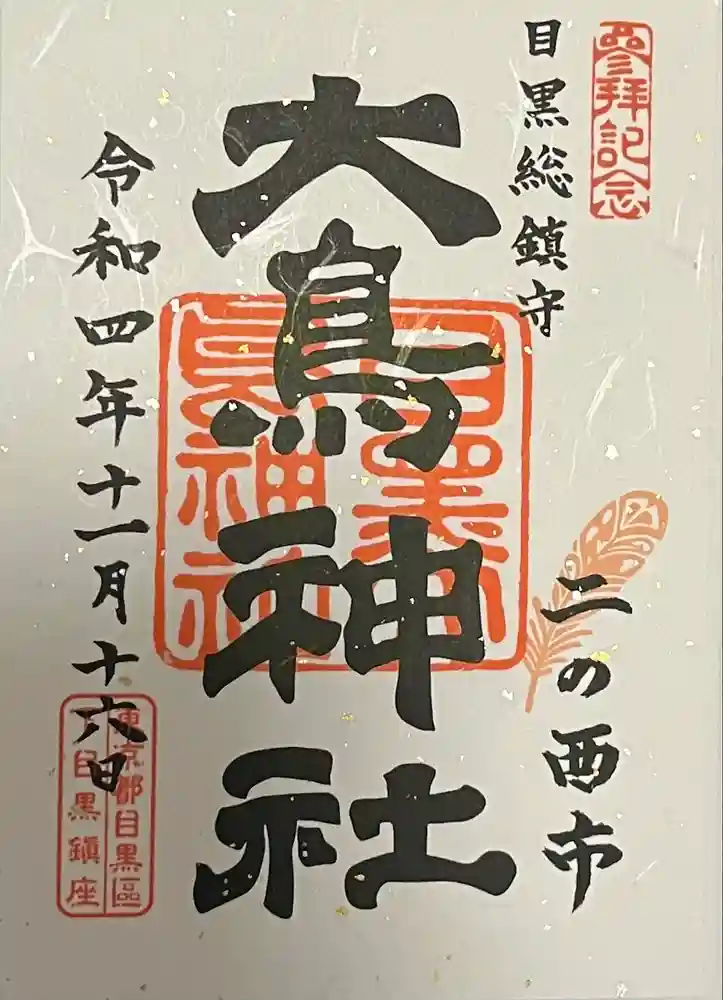 參拝記念
目黒総鎮守
二の酉市
大鳥神社
令和四年十一月十六日
東京都目黒區
目黒鎮座